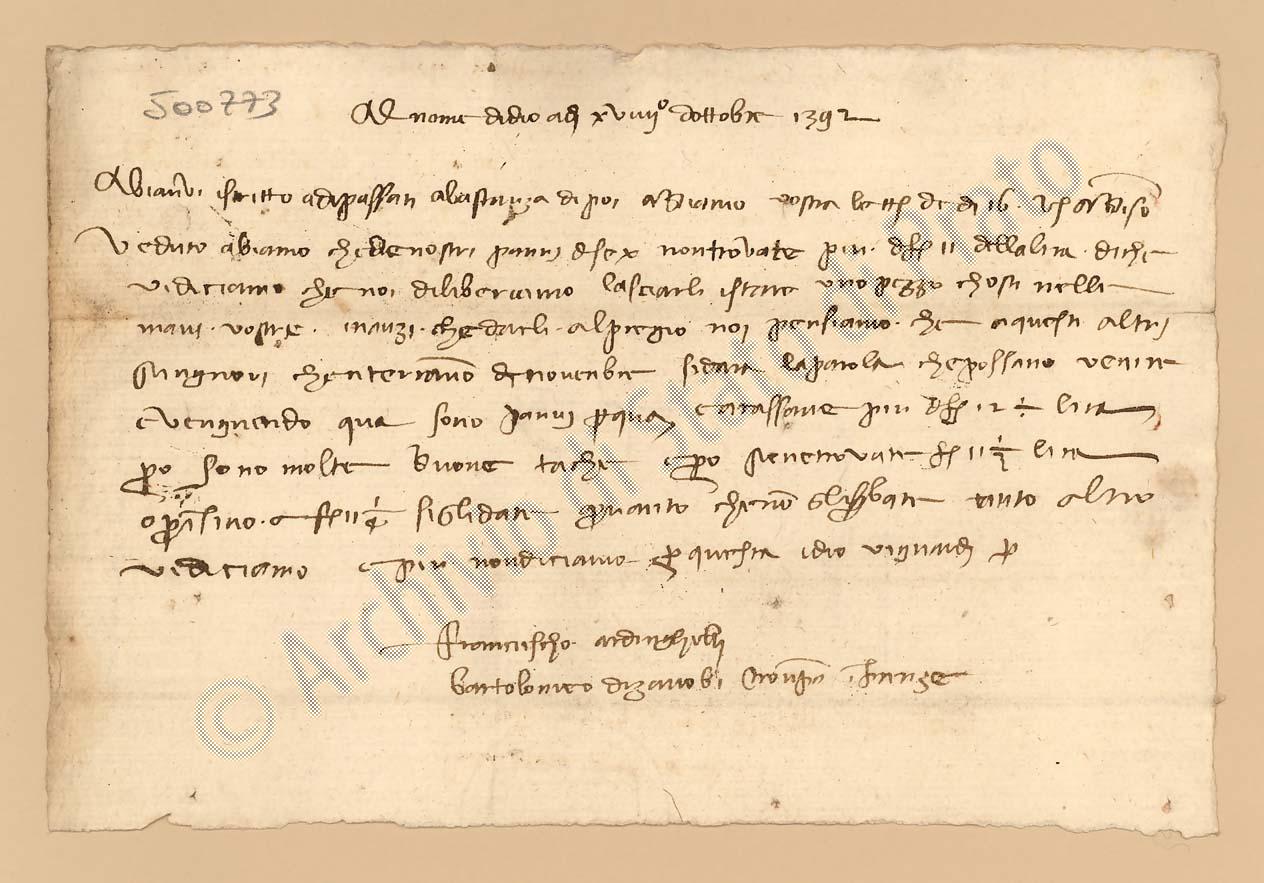 500773
Al nome di dio adi xviiij° dottobre 1392
Abianvi iscritto a di passati abastanza di poi abiamo vostra lett de di 16
veduto abiamo che de nostri panni non trovate piu 11 della lira di che
vi diciamo che noi diliberiamo lasciarli istare uno pezzo chosti nelle
mani vostre inanzi che darli al pregio noi pensiamo che a questi altri
singnori chenterranno di novenbre si dara la parola che possano venire
e vengnendo qua sono panni per qua e chassone piu lira
pero sono molte buone tache e pero se ne trovate 11 lira
o per insino a 11 si gli date quanto che no gli serbate altro
vi diciamo e piu non diciamo per questa idio vi guardi per
Franciescho ardinghelli
bartolomeo di zanobi chonp in firenze
© Archivio di Stato di Prato